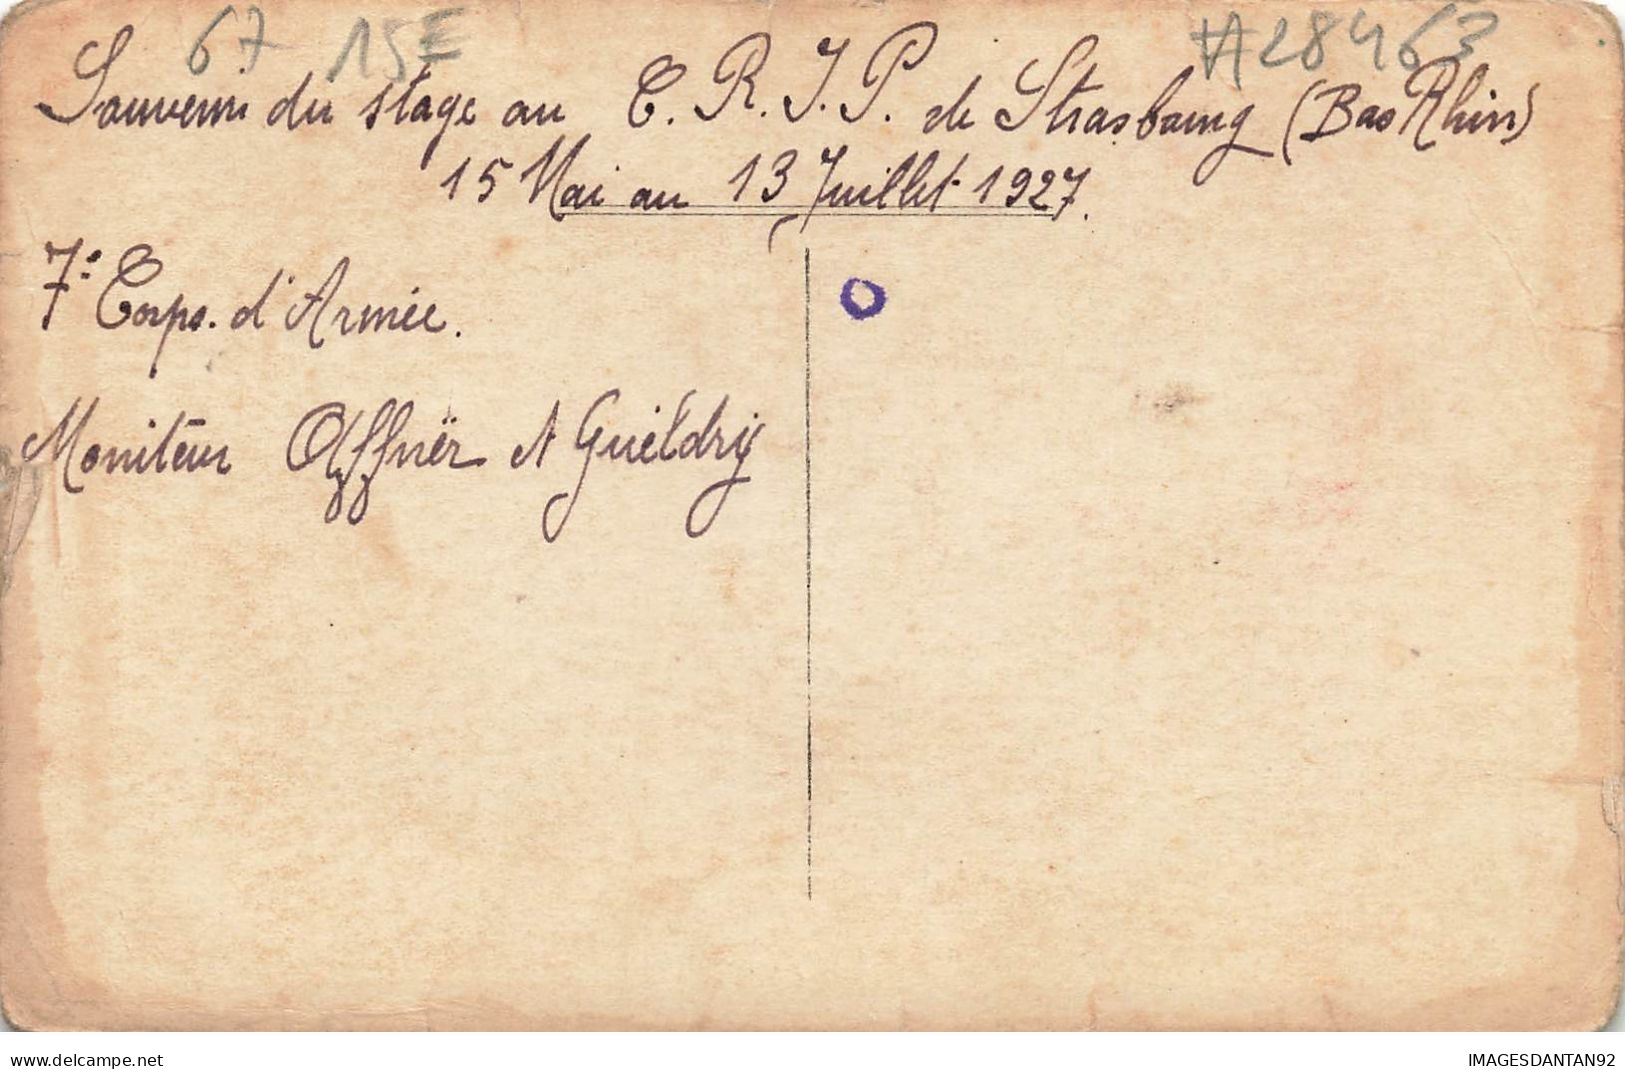 67 15E #28463
Souvenir du stage au C. R. I. P. de Strasbourg (Bas Rhin)
15 Mai au 13 Juillet 1927.
7e Corps. d'Armée.
Moniteur Offnër et Gueldry
www.delcampe.net IMAGESDANTAN92